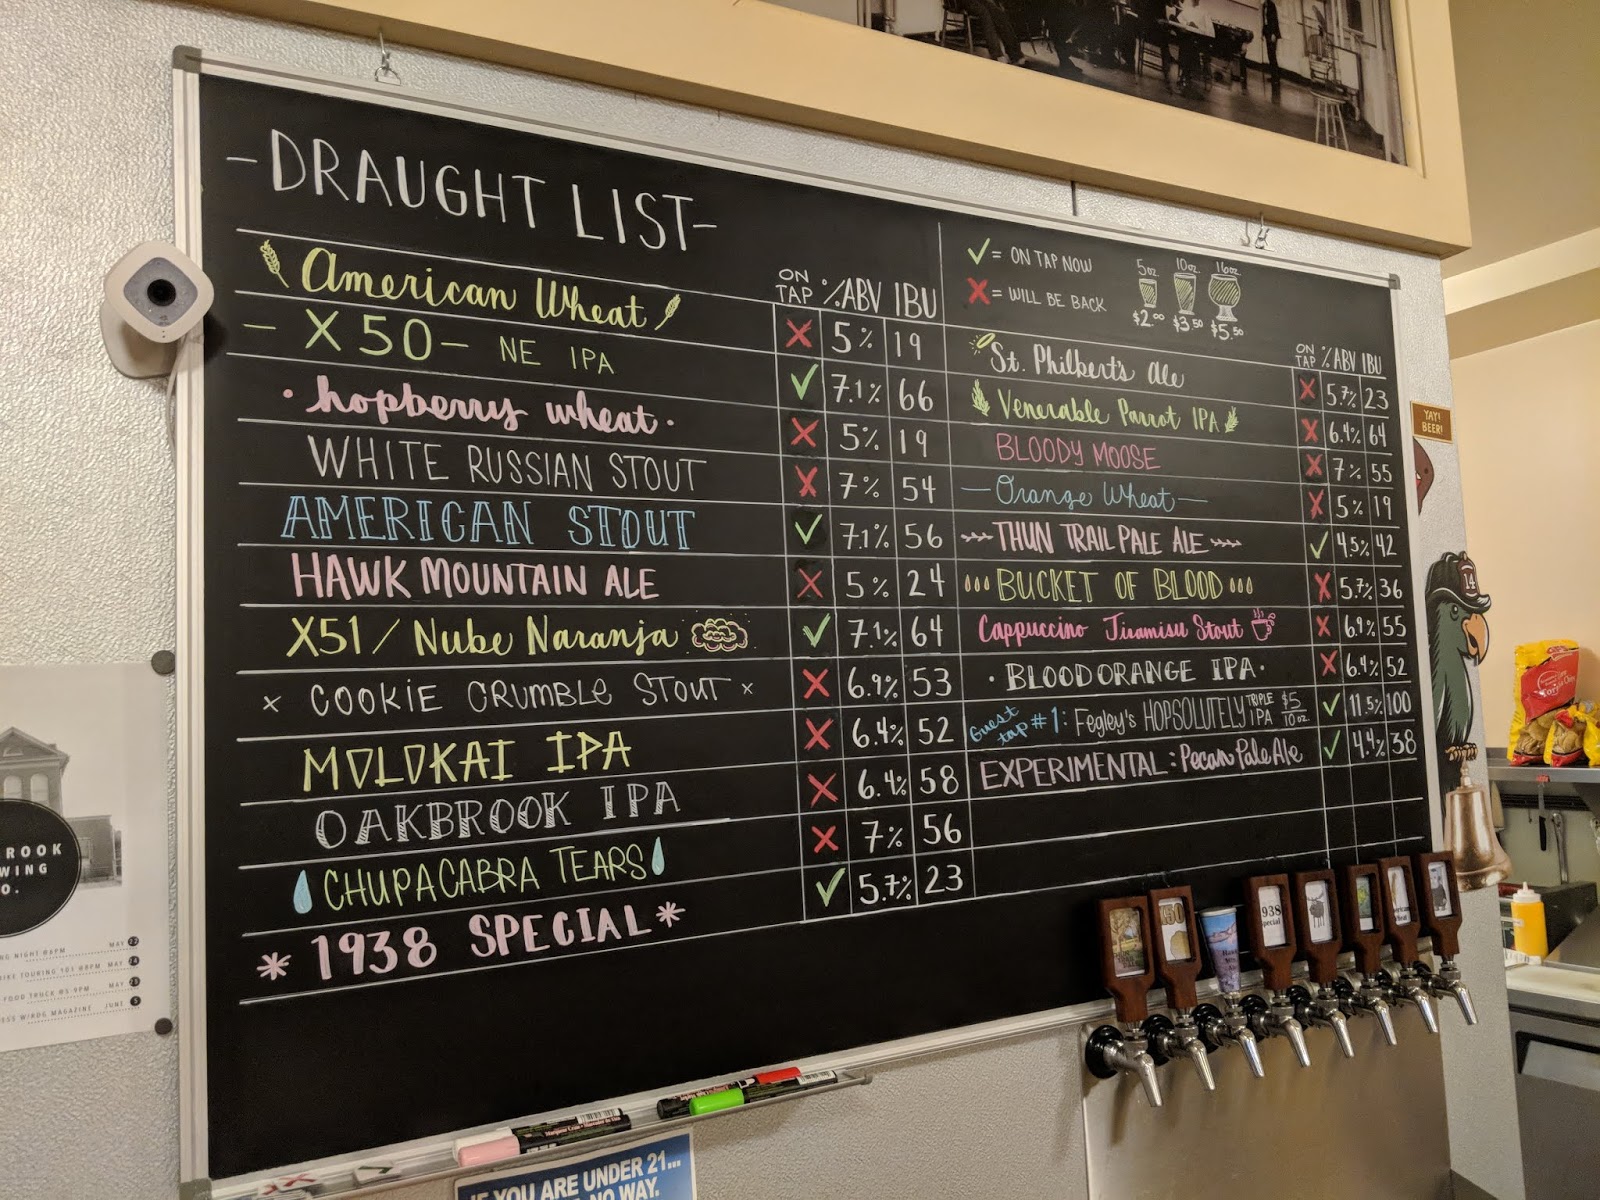 -DRAUGHT LIST-
ON TAP %ABV IBU
American Wheat ✗ 5% 19
- X50 - NE IPA ✓ 7.1% 66
· hopberry wheat · ✗ 5% 19
WHITE RUSSIAN STOUT ✗ 7% 54
AMERICAN STOUT ✓ 7.1% 56
HAWK MOUNTAIN ALE ✗ 5% 24
X51 / Nube Naranja ✓ 7.1% 64
x COOKIE CRUMBLE STOUT x ✗ 6.9% 53
MOLOKAI IPA ✗ 6.4% 52
OAKBROOK IPA ✗ 6.4% 58
CHUPACABRA TEARS ✗ 7% 56
* 1938 SPECIAL * ✓ 5.7% 23
✓ = ON TAP NOW
✗ = WILL BE BACK
5oz. 10oz. 16oz.
$2.00 $3.50 $5.50
ON TAP %ABV IBU
St. Philbert's Ale ✗ 5.7% 23
Venerable Parrot IPA ✗ 6.4% 64
BLOODY MOOSE ✗ 7% 55
— Orange Wheat — ✗ 5% 19
THUN TRAIL PALE ALE ✓ 4.5% 42
BUCKET OF BLOOD ✗ 5.7% 36
Cappuccino Tiramisu Stout ✗ 6.9% 55
· BLOOD ORANGE IPA · ✗ 6.4% 52
Guest tap #1: Fegley's HOPSOLUTELY TRIPLE IPA $5 10oz. ✓ 11.5% 100
EXPERIMENTAL: Pecan Pale Ale ✓ 4.4% 38
YAY! BEER!
14
ROOK
WING
O.
NG NIGHT @6PM MAY 22
IKE TOURING 103 @8PM MAY 24
FOOD TRUCK @5-9PM MAY 25
MAGAZINE JUNE 5
X50
1938
Special
IF YOU ARE UNDER 21...
NO WAY.